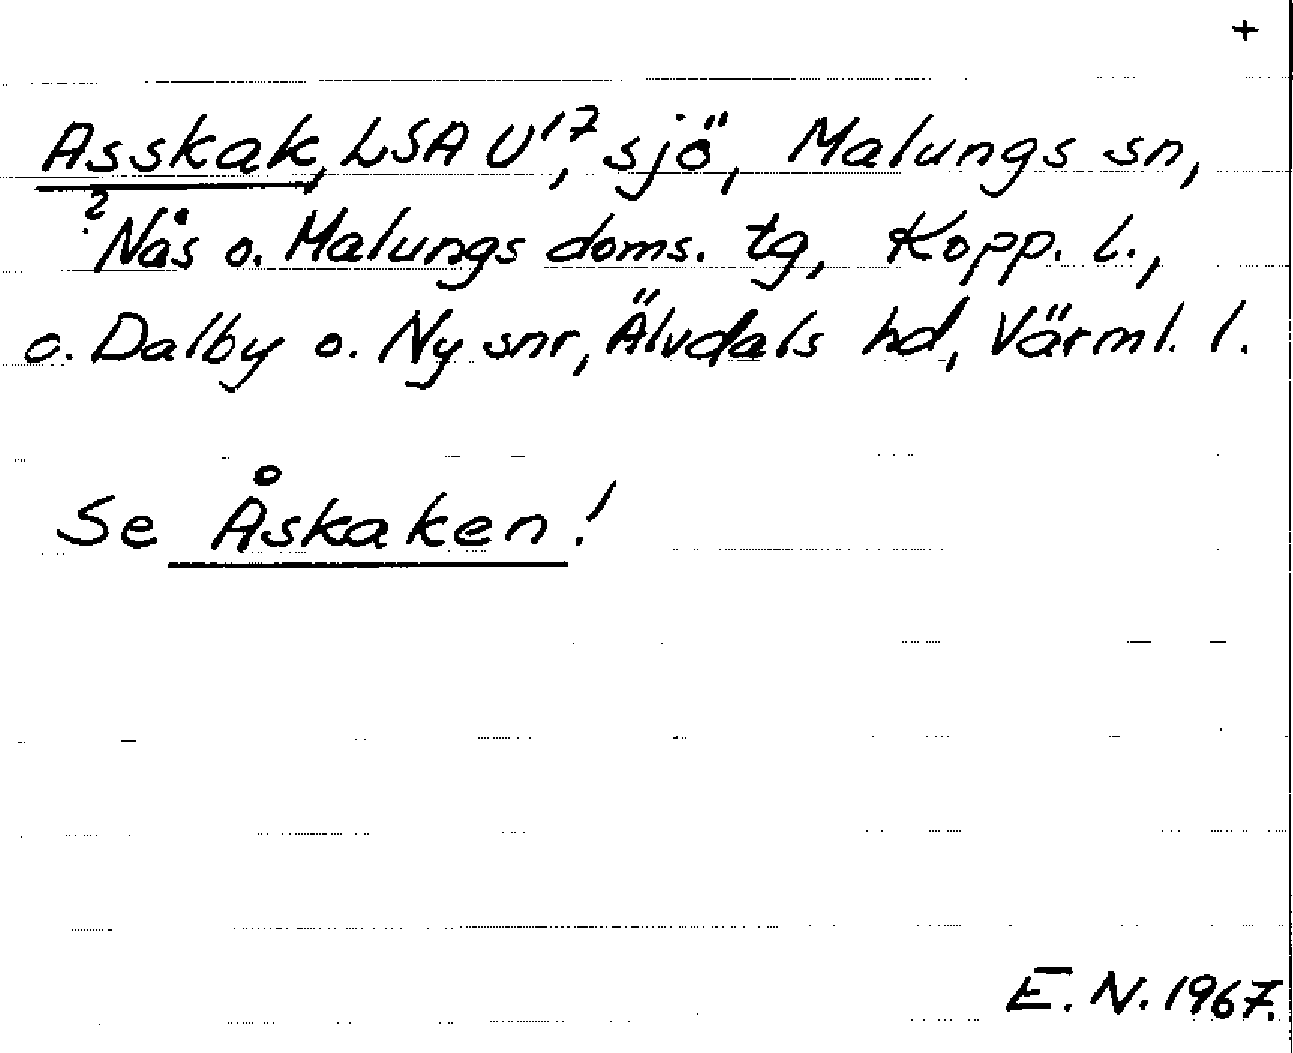 +
Asskak, LSA U¹⁷, sjö, Malungs sn,
? Nås o. Malungs doms. tg, Kopp. l.,
o. Dalby o. Ny snr, Älvdals hd, Värml. l.
Se Åskaken!
E. N. 1967.